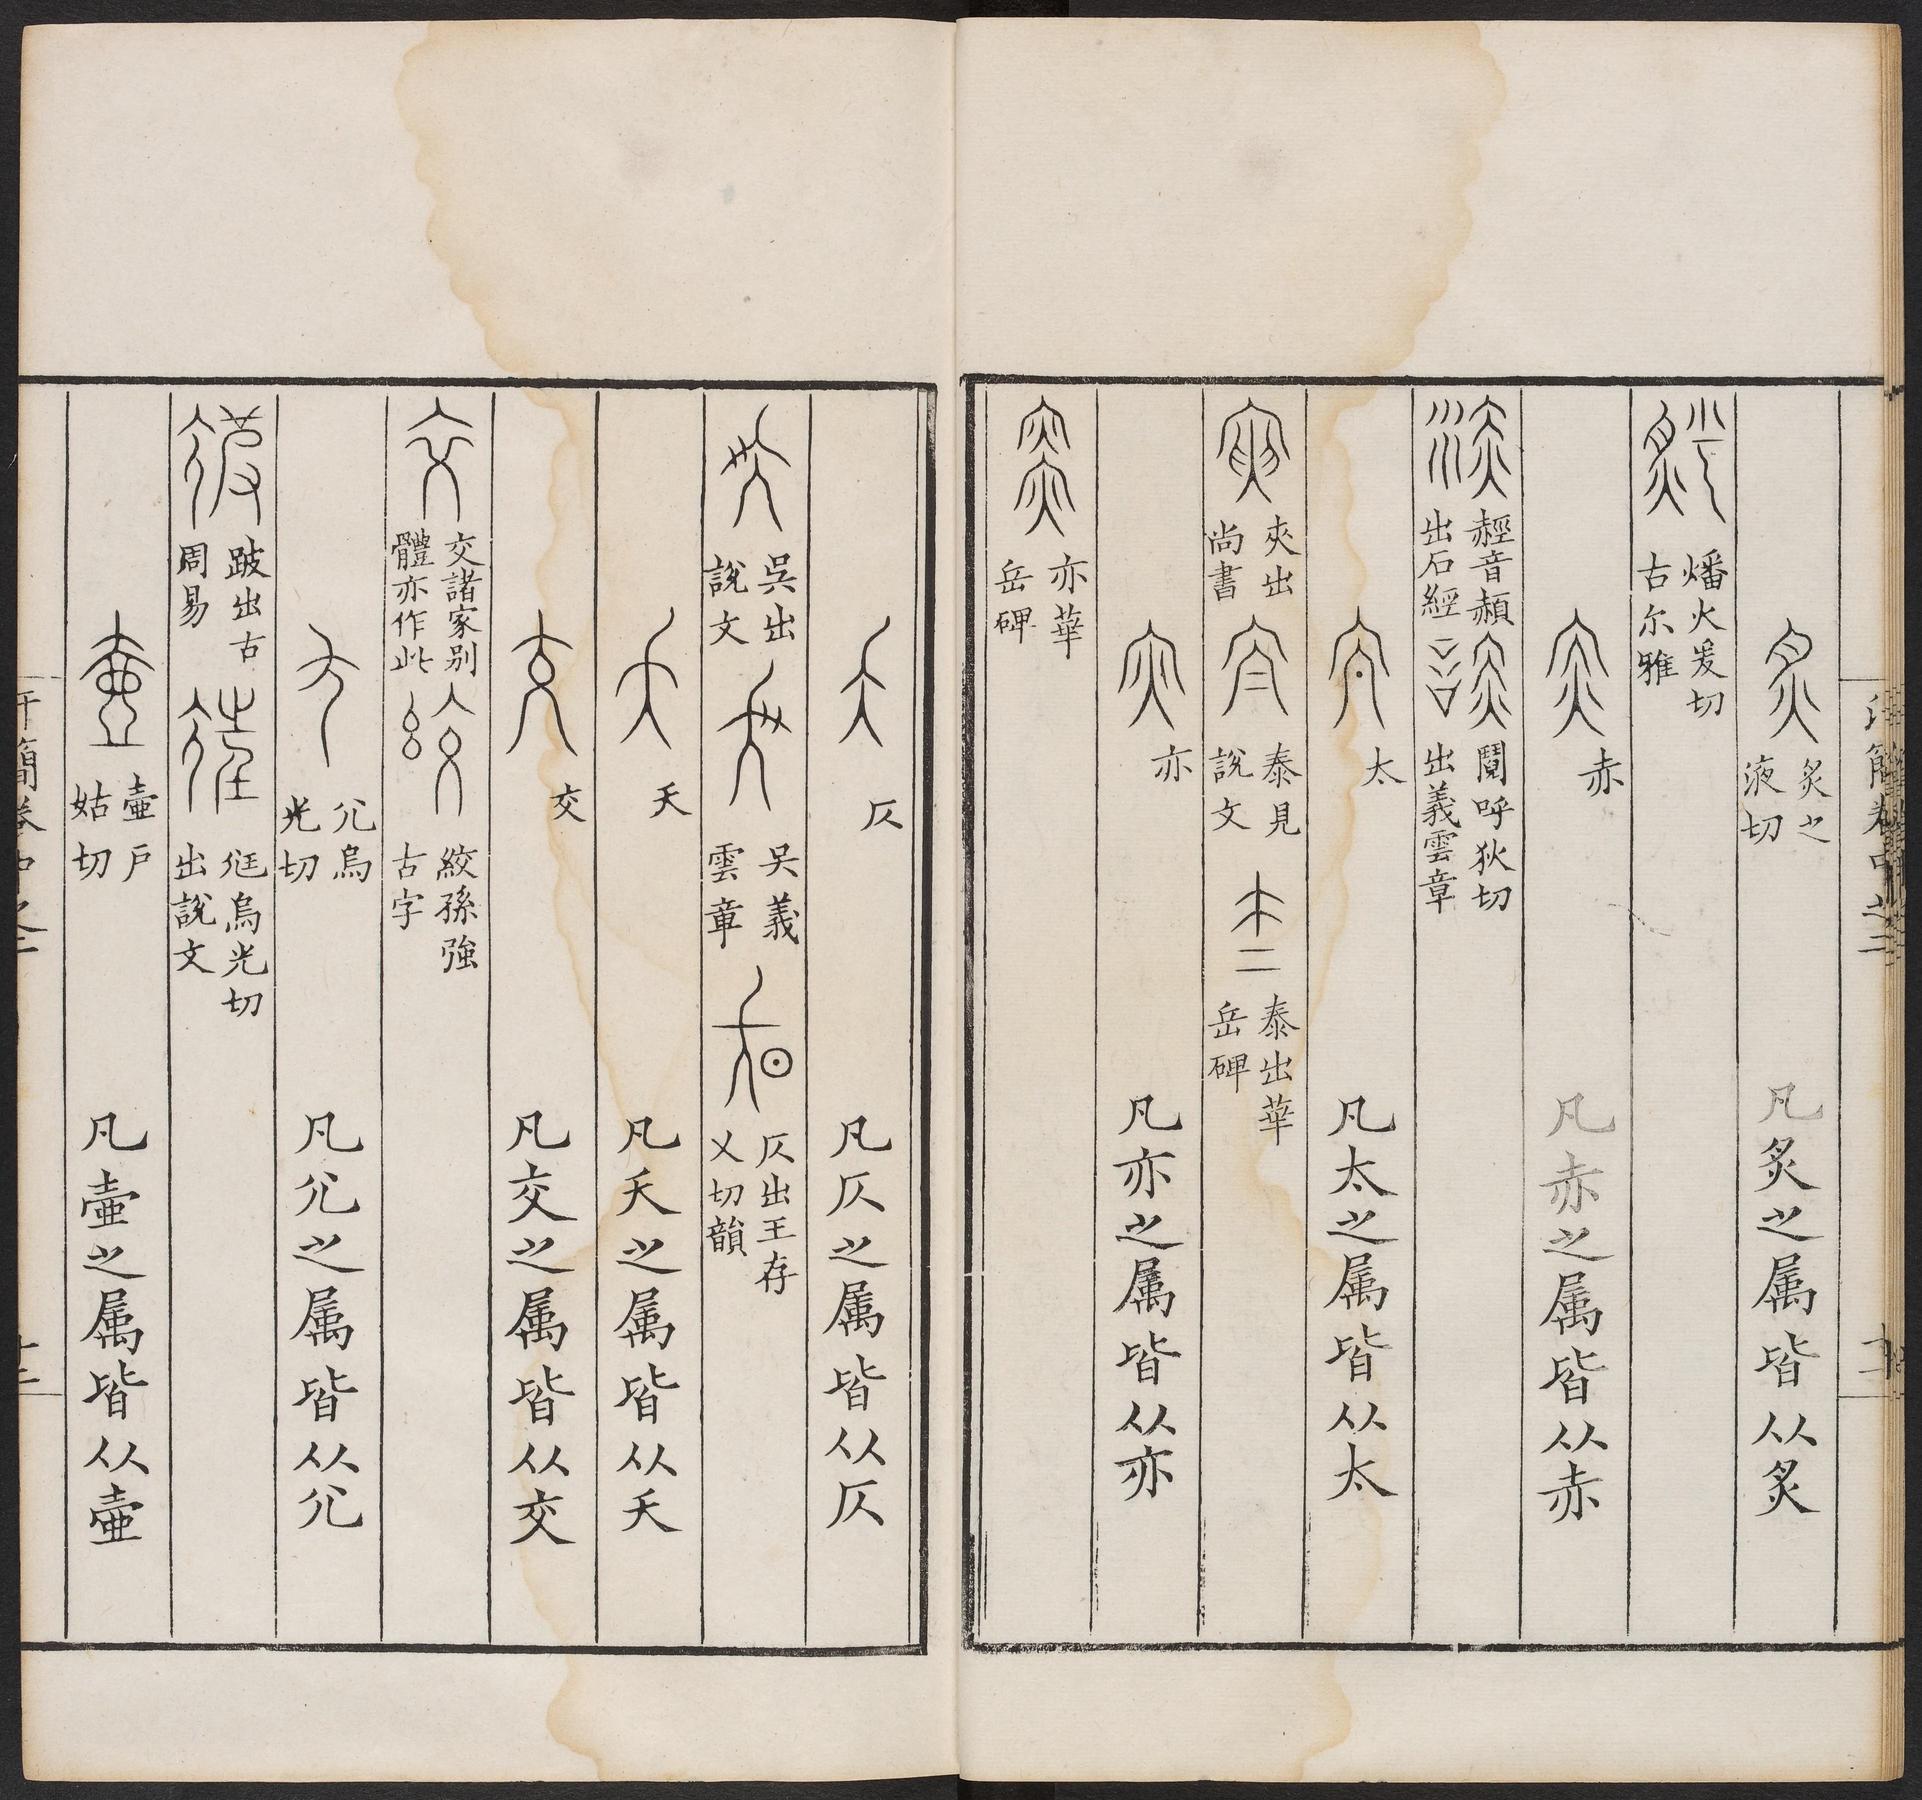 炙之液切 凡炙之属皆从炙
燔火爰切古尔雅
赤 凡赤之属皆从赤
赬音頳出石經 鬩呼狄切出義雲章
太 凡太之属皆从太
夾出尚書 泰見說文 泰出華岳碑
亦 凡亦之属皆从亦
亦華岳碑
仄 凡仄之属皆从仄
吳出說文 吴義雲章 仄出王存乂切韻
夭 凡夭之属皆从夭
交 凡交之属皆从交
交諸家别體亦作此 絞孫強古字
尣烏光切 凡尣之属皆从尣
跛出古周易 尪烏光切出說文
壷户姑切 凡壷之属皆从壷
汗簡卷中之二